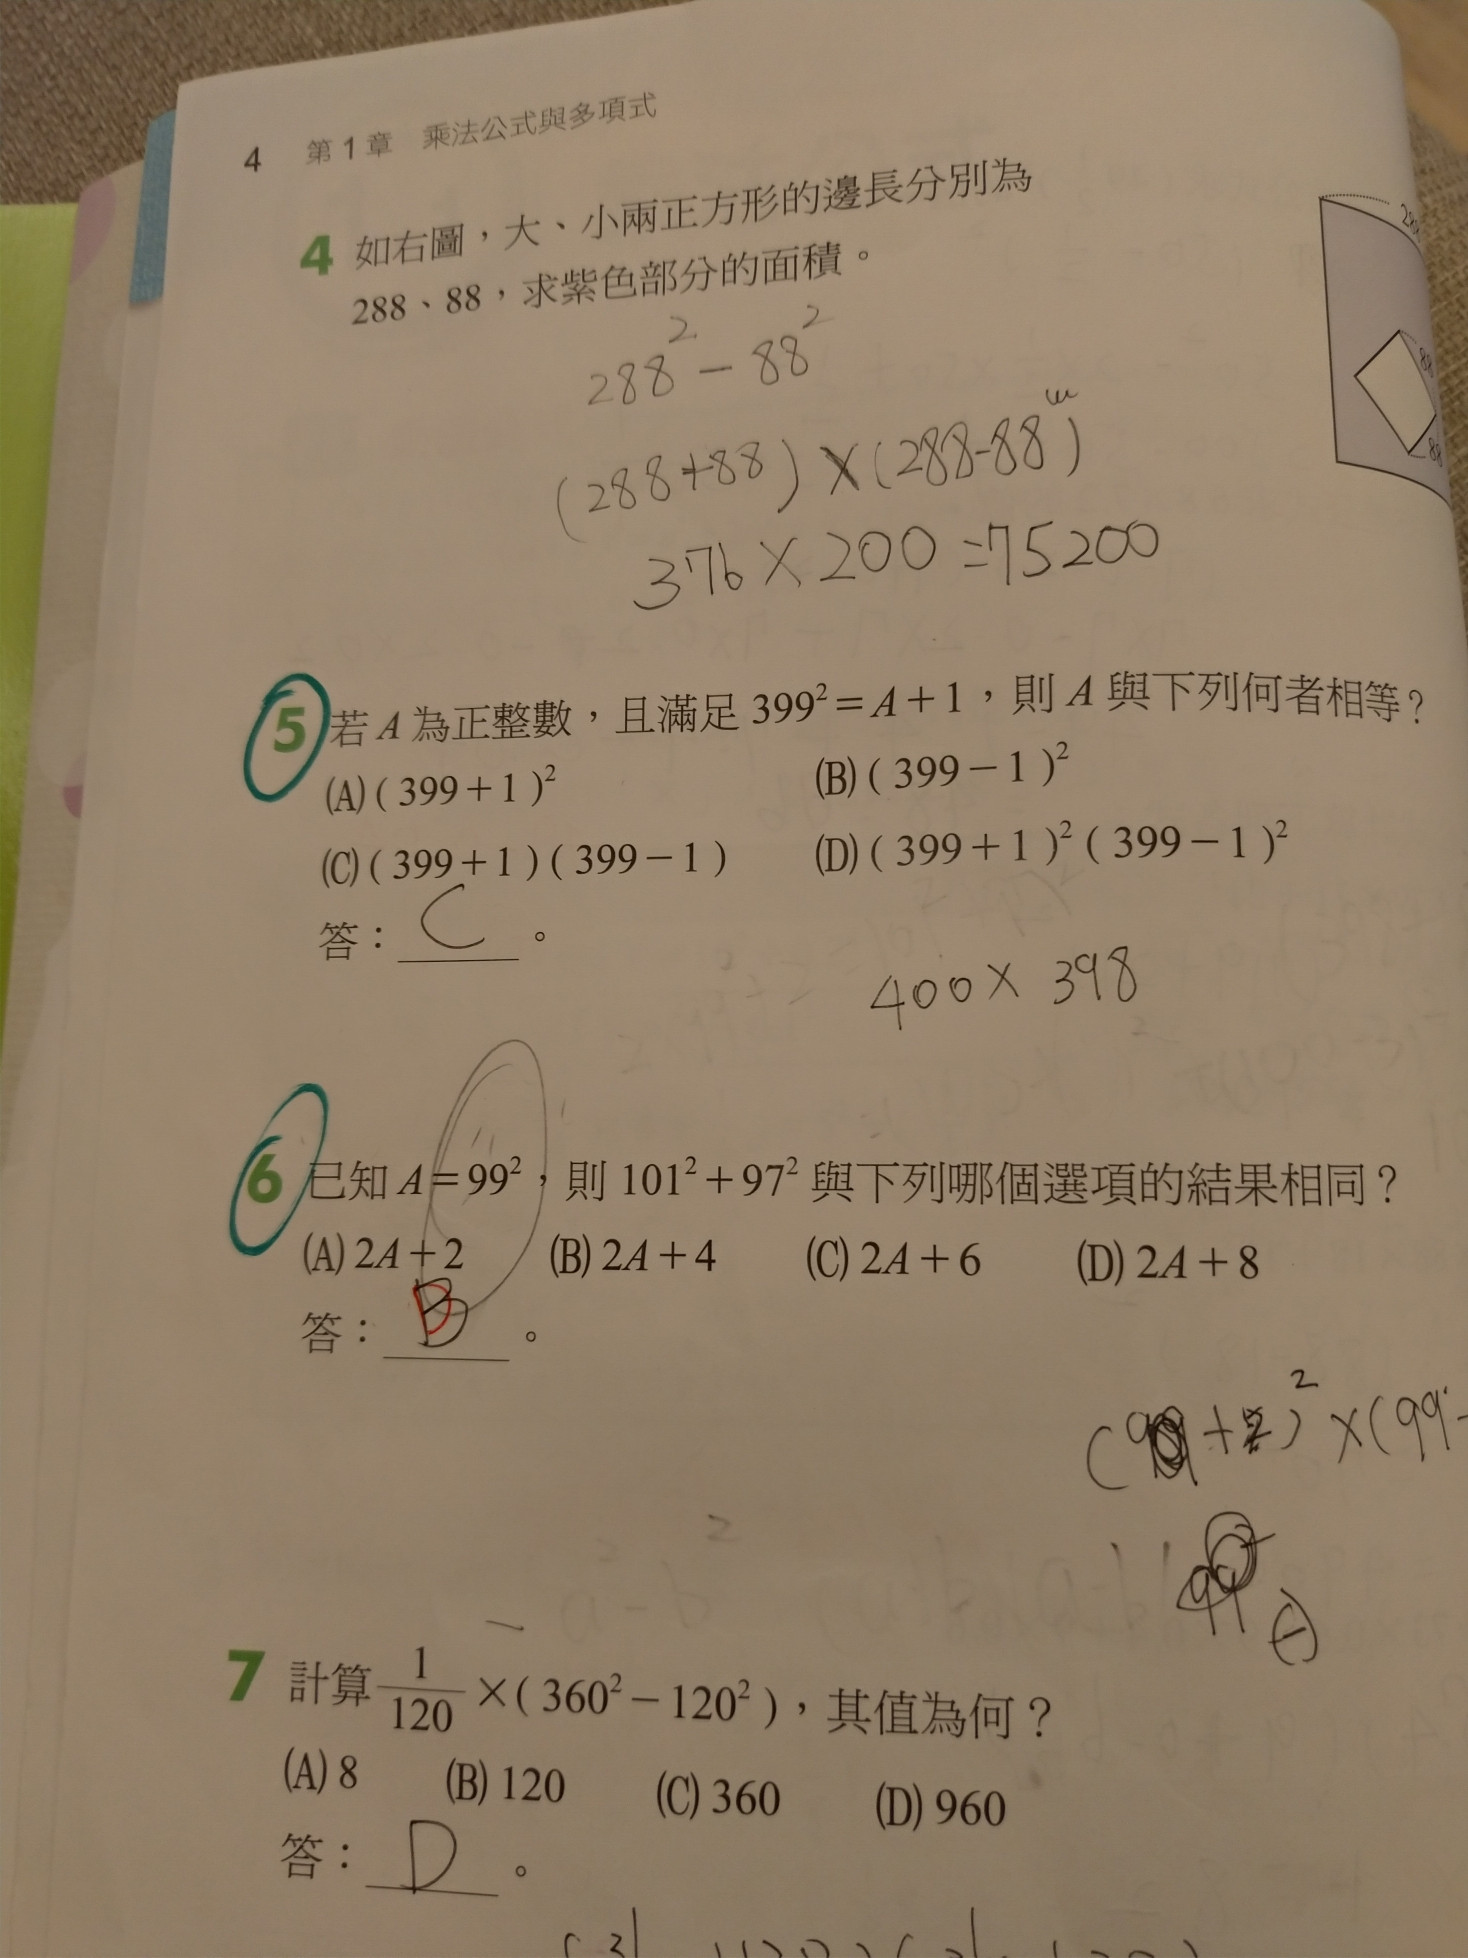 4 第1章 乘法公式與多項式
4 如右圖，大、小兩正方形的邊長分別為
288、88，求紫色部分的面積。
288² − 88²
(288+88)×(288-88)
376×200=75200
88
88
5 若 A 為正整數，且滿足 399²=A+1，則 A 與下列何者相等？
(A)(399+1)² (B)(399−1)²
(C)(399+1)(399−1) (D)(399+1)²(399−1)²
答：C。
400×398
6 已知 A=99²，則 101²+97² 與下列哪個選項的結果相同？
(A)2A+2 (B)2A+4 (C)2A+6 (D)2A+8
答：B。
7 計算 1/120 ×(360²−120²)，其值為何？
(A)8 (B)120 (C)360 (D)960
答：D。